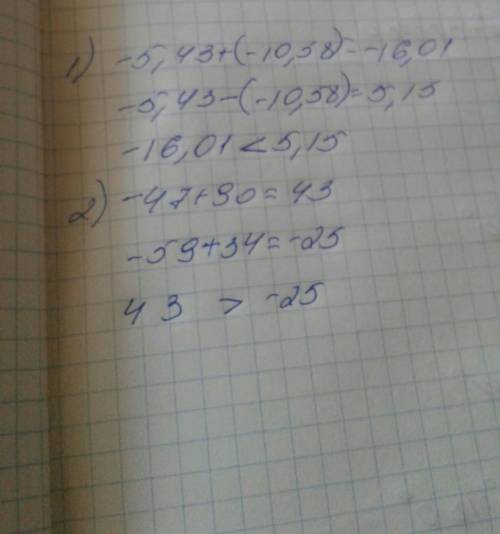 1) -5,43+(-10,58)=-16,01
-5,43-(-10,58)=5,15
-16,01<5,15
2) -47+90=43
-59+34=-25
43 > -25